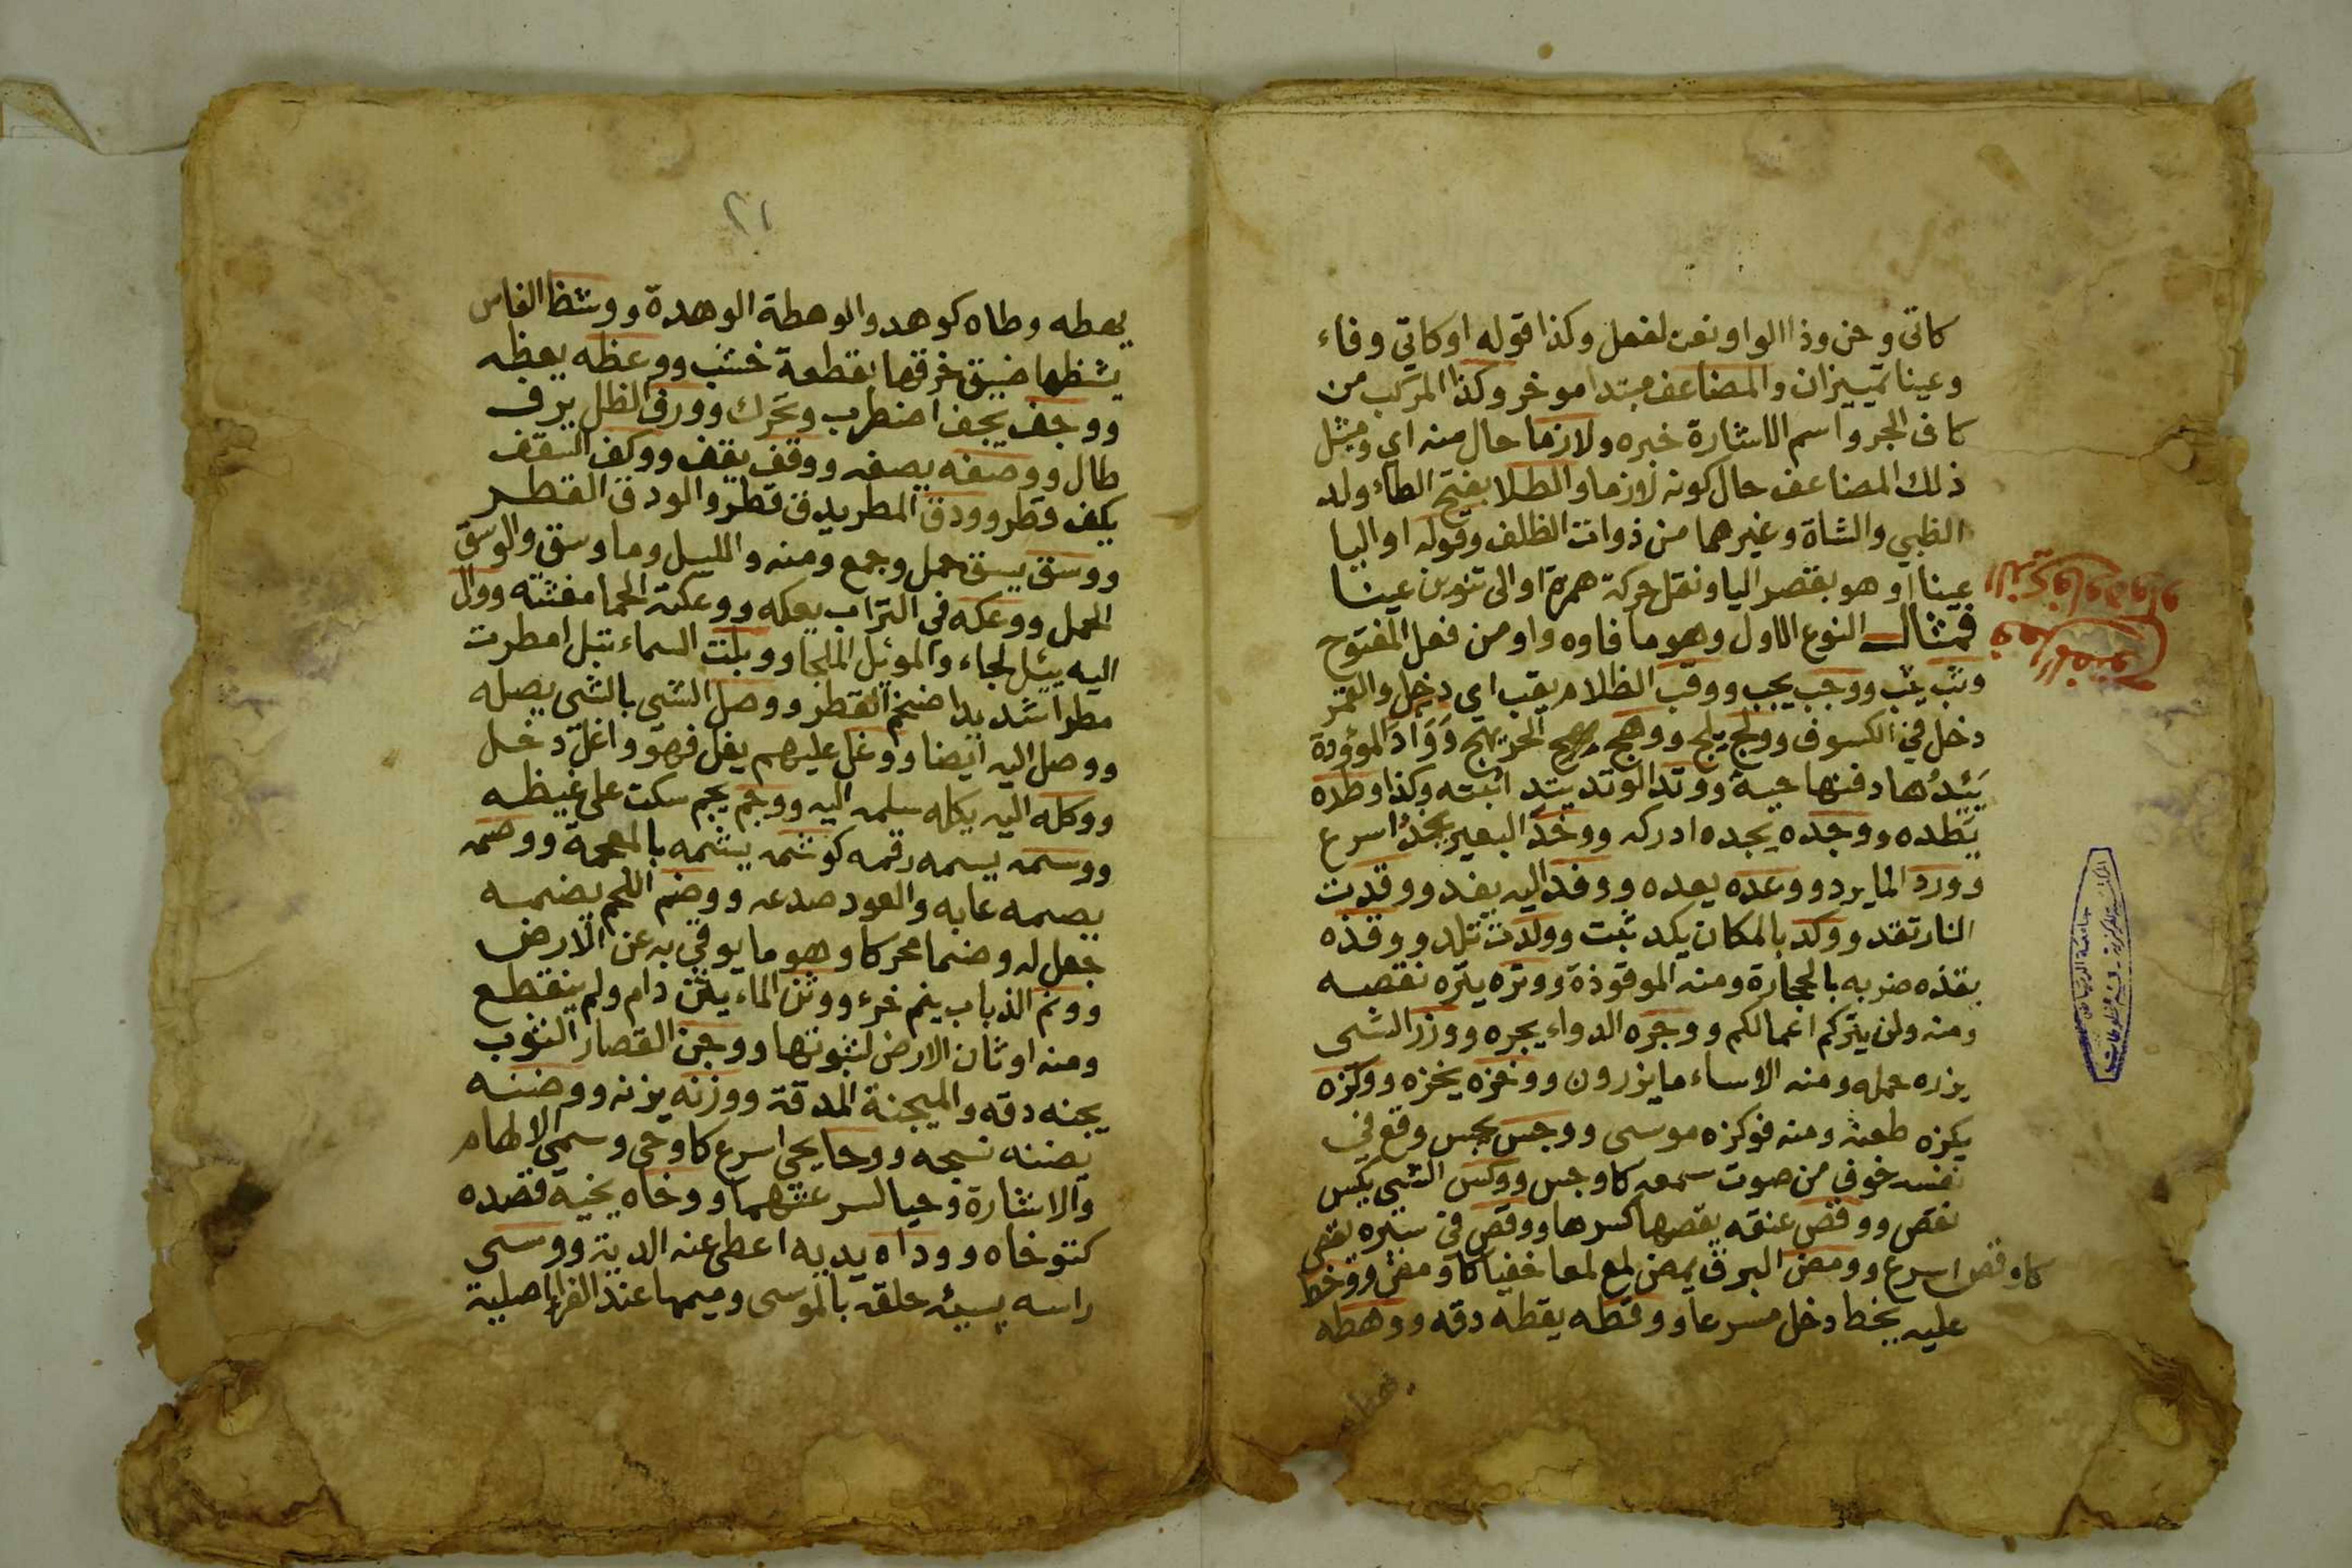 كاتى وحن وذا الواو نعت لفعل وكذا قوله او كاتي وفاء
وعينا تمييزان والمضاعف مبتدا موخر وكذا المركب من
كاف الجر واسم الاشارة خبره ولازما حال منه اي ومثل
ذلك المضاعف حال كونه لازما والطلا بفتح الطاء ولد
الظبي والشاة وغيرهما من ذوات الظلف وقوله او اليا
عينا او هو بقصر اليا ونقل حركة همزة او الى تنوين عينا
فمثال النوع الاول وهو ما فاوه واو من فعل المفتوح
وثب يثب ووجب يجب ووقب الظلام يقب اي دخل والقمر
دخل في الكسوف وولج يلج ووهج الحر يهج ووأد المؤودة
يَئِدُها دفنها حية ووتد الوتد يتد اثبته وكذا وطده
يطده ووجده يجده ادركه ووخد البعير يخد اسرع
وورد الما يرد ووعده يعده ووفد اليه يفد ووقدت
النار تقد ووكد بالمكان يكد ثبت وولدت تلد ووقذه
يقذه ضربه بالحجارة ومنه الموقوذة ووتره يتره نقصه
ومنه ولن يتركم اعمالكم ووجره الدواء يجره ووزر الشى
يزره حمله ومنه الاساء ما يزرون ووخزه يخزه ووكزه
يكزه طعنه ومنه فوكزه موسى ووجس يجس وقع في
نفسه خوف من صوت سمعه كاوجس ووكس الشي يكس
نقص ووقص عنقه يقصها كسرها ووقص في سيره يقص
كاوقص اسرع وومض البرق يمض لمع لمعا خفيا كاومض ووخط
عليه يخط دخل مسرعا ووقطه يقطه دقه ووهطه
يهطه وطاه كوهد والوهطة الوهدة ووشظ الفاس
يشظها ضيق خرقها بقطعة خشب ووعظه يعظه
ووجف يجف اضطرب وتحرك وورف الظل يرف
طال ووصفه يصفه ووقف يقف ووكف السقف
يكف قطر وودق المطر يدق قطر والودق القطر
ووسق يسق حمل وجمع ومنه والليل وما وسق والوسق
الحمل ووعكه في التراب يعكه ووعكته الحما مغثته ووال
اليه يئل لجاء والموئل الملجا ووبلت السماء تبل امطرت
مطرا شديدا ضخم القطر ووصل الشي بالشي يصله
ووصل اليه ايضا ووغل عليهم يغل فهو واغل دخل
ووكله اليه يكله سلمه اليه ووجم يجم سكت على غيظه
ووسمه يسمه رقمه كوشمه يشمه بالمعجمة ووصمه
يصمه عابه والعود صدعه ووضم اللحم يضمه
جعل له وضما محركا وهو ما يوقي به عن الارض
وونم الذباب ينم خرء ووثن الماء يثن دام ولم ينقطع
ومنه اوثان الارض لثبوتها ووجن القصار الثوب
يجنه دقه والميجنة المدقة ووزنه يزنه ووضنه
يضنه نسجه ووحا يحي اسرع كاوحى وسمى الالهام
والاشارة وحيا لسرعتهما ووخاه يخيه قصده
كتوخاه ووداه يديه اعطى عنه الدية ووسى
راسه يسيه حلقه بالموسى وميمها عند الفرا اصلية